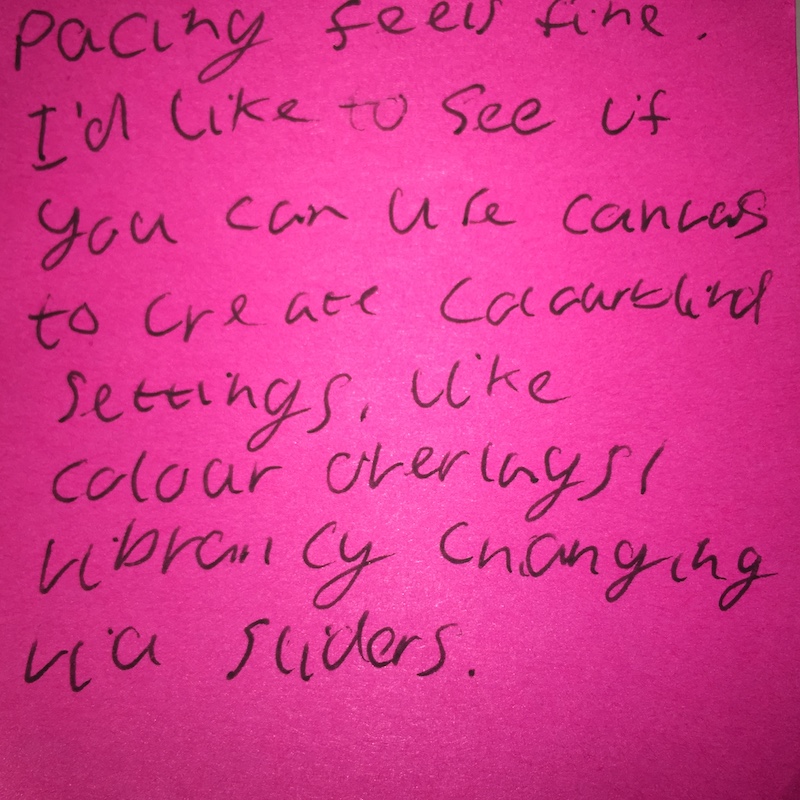 Pacing feels fine.
I'd like to see if
you can use canvas
to create colourblind
settings, like
colour overlays/
vibrancy changing
via sliders.